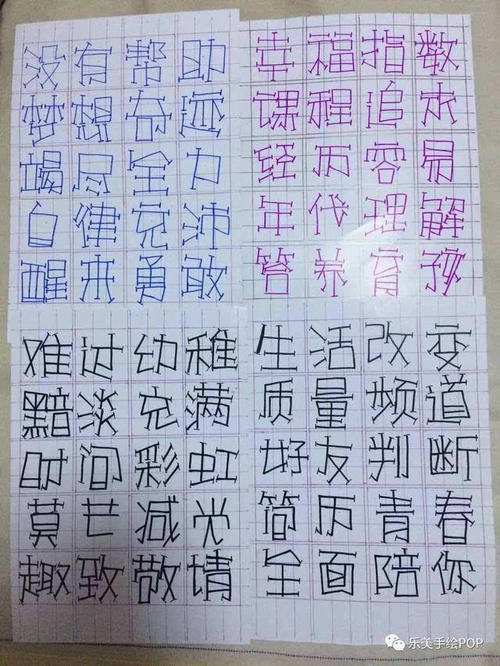 没有帮助
梦想奇迹
竭尽全力
自律充沛
醒来勇敢
幸福指数
课程追求
经历容易
年代理解
答养育孩
难过幼稚
黯淡充满
时间彩虹
莫芒减光
趣致敬情
生活改变
质量频道
好友判断
简历青春
全面陪你
乐美手绘POP